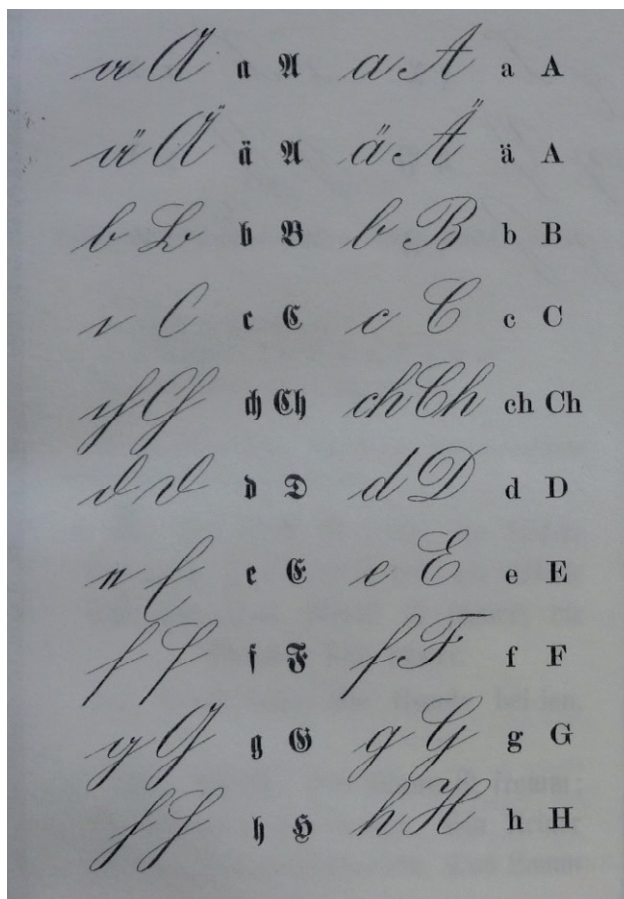 a A a A a A a A
ä Ä ä A ä Ä ä A
b B b B b B b B
c C c C c C c C
ch Ch ch Ch ch Ch ch Ch
d D d D d D d D
e E e E e E e E
f F f F f F f F
g G g G g G g G
h H h H h H h H